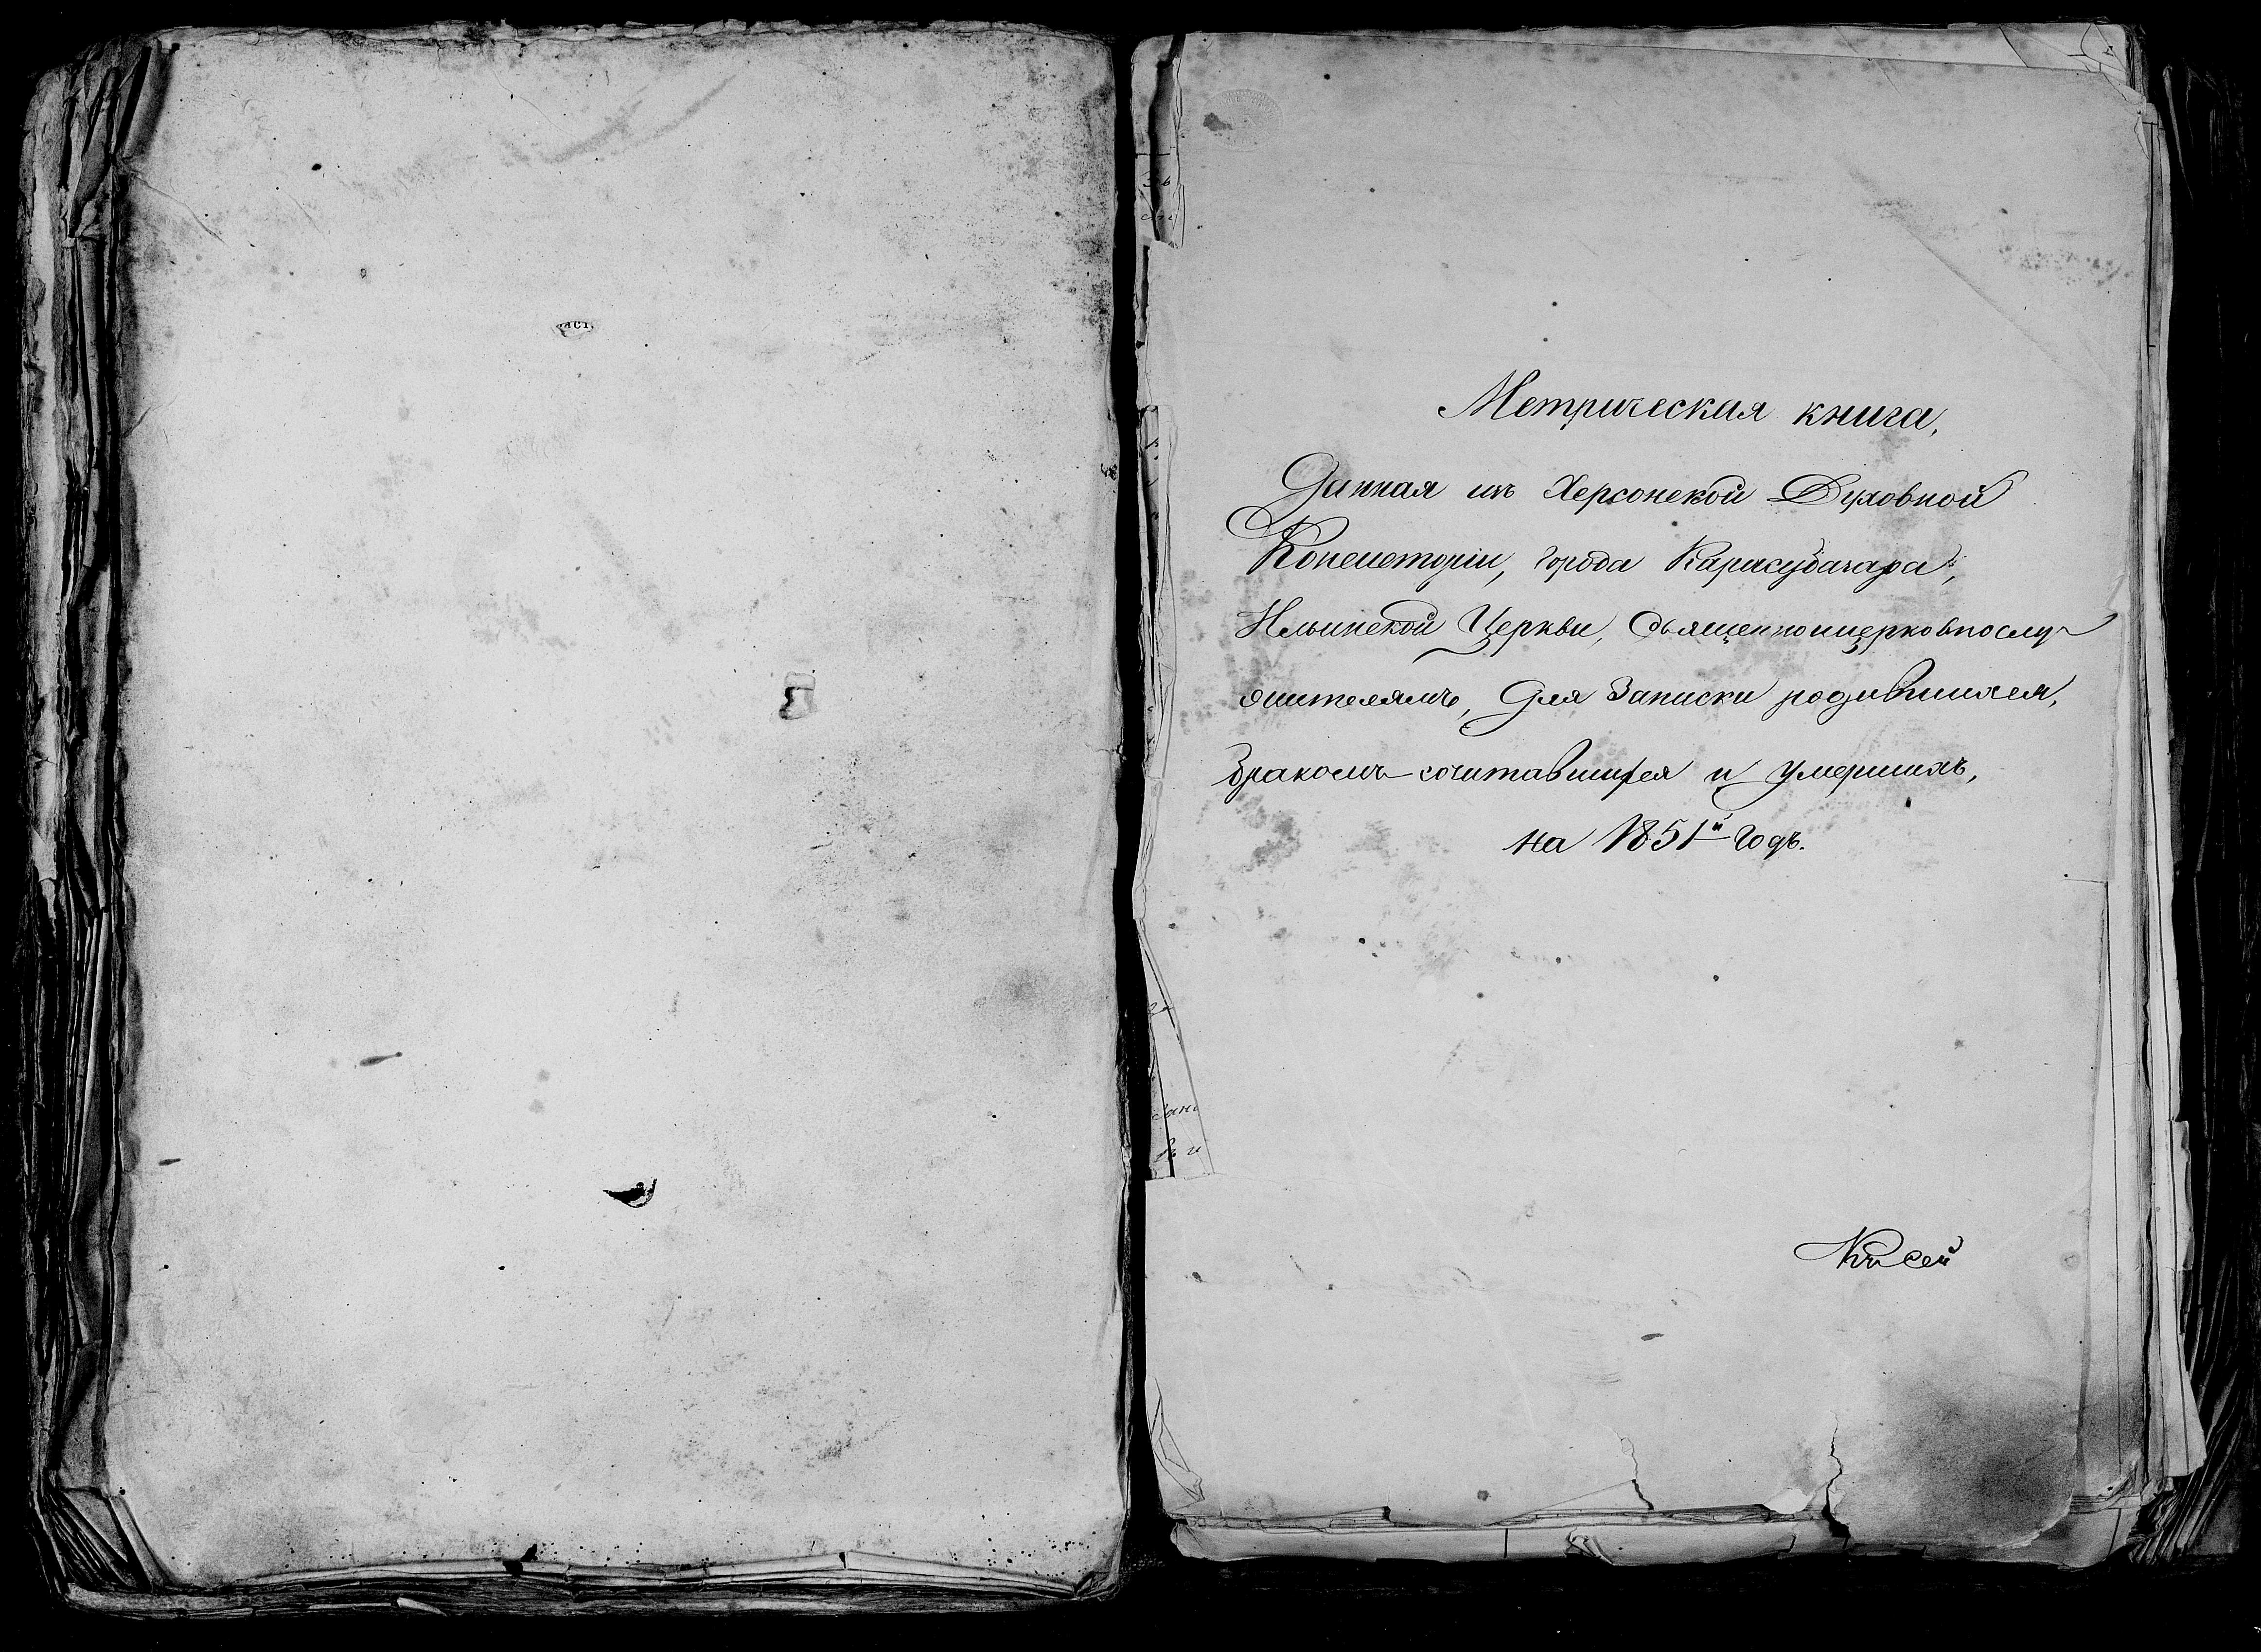 Метрическая книга,
Данная изъ Херсонской Духовной
Консисторіи, города Карасубазара,
Ильинской Церкви, Священноицерковнослу-
жителямъ, Для Записки родившихся,
бракомъ сочитавшихся и умершихъ,
на 1851й Годъ.